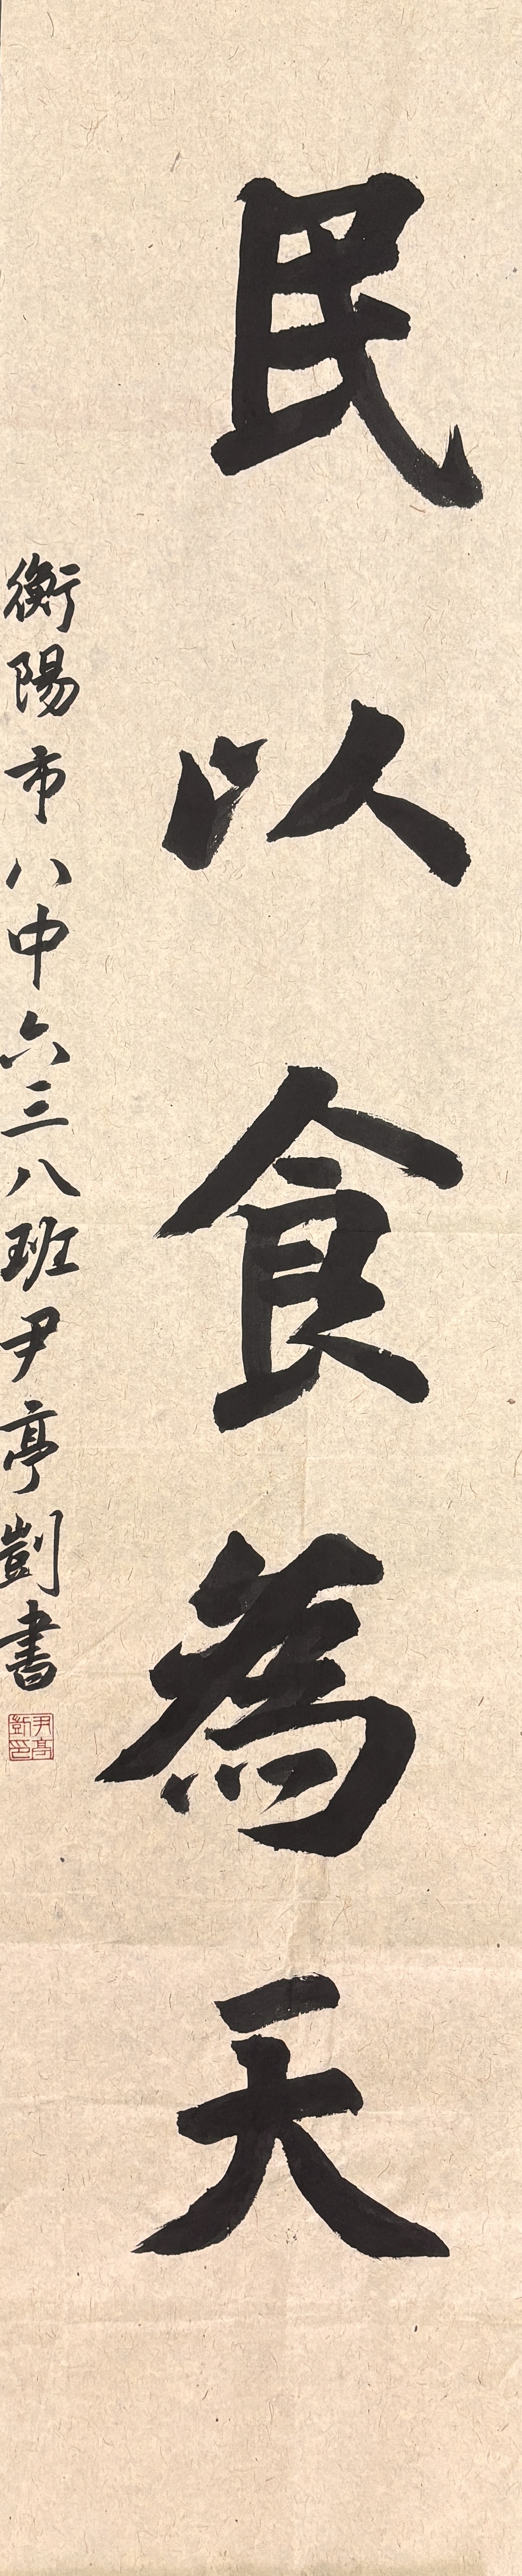 民以食為天
衡陽市八中六三八班尹亭剴書
尹亭剴印